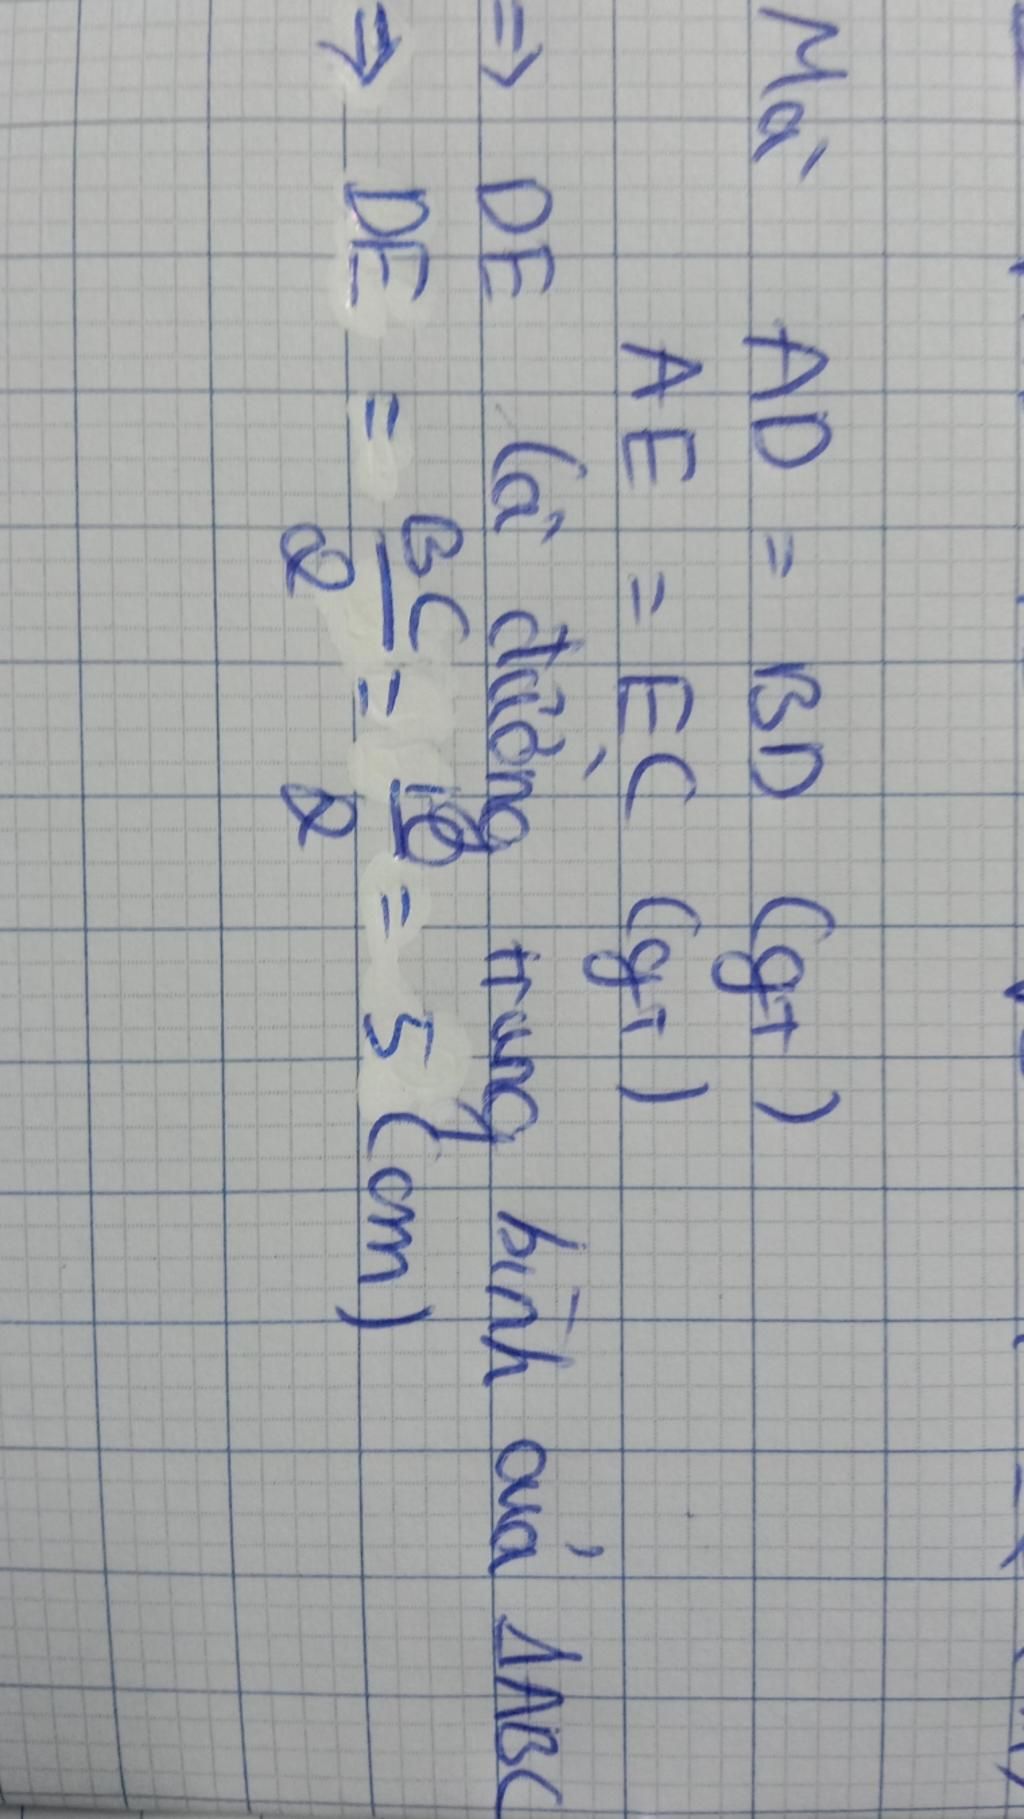 Mà AD = BD (gt)
AE = EC (gt)
=> DE là đường trung bình của ΔABC
=> DE = BC/2 = 10/2 = 5 (cm)